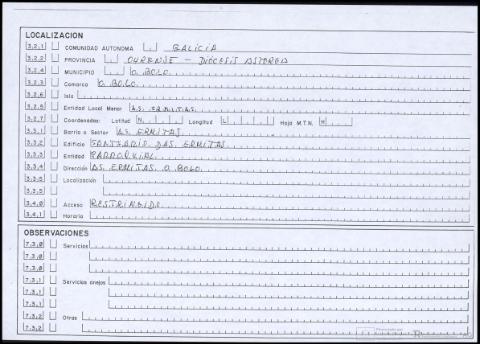 LOCALIZACION
3.2.1 COMUNIDAD AUTONOMA GALICIA
3.2.2 PROVINCIA OURENSE - DIÓCESIS ASTORGA
3.2.4 MUNICIPIO O BOLO
3.2.3 Comarca O BOLO
3.2.6 Isla
3.2.5 Entidad Local Menor AS ERMITAS
3.2.7 Coordenadas: Latitud N Longitud L Hoja M.T.N. #
3.3.1 Barrio o Sector AS ERMITAS
3.3.2 Edificio SANTUARIO DAS ERMITAS
3.3.3 Entidad PARROQUIAL
3.3.4 Dirección AS ERMITAS. O BOLO.
3.3.5 Localización
3.3.5
3.4.0 Acceso RESTRINGIDO
3.4.1 Horario
OBSERVACIONES
7.3.0 Servicios
7.3.0
7.3.0
7.3.1 Servicios anejos
7.3.1
7.3.1
7.3.2 Otras
7.3.2